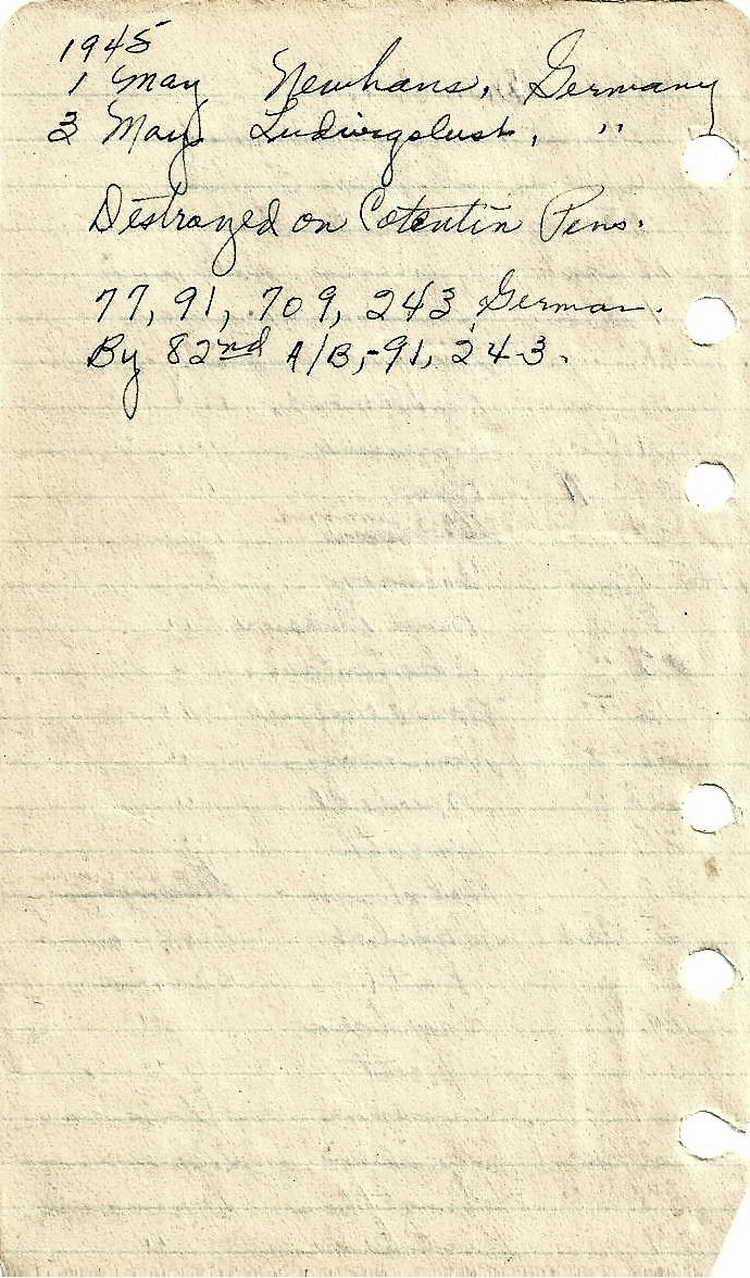 1945
1 May Newhans, Germany
3 May Ludwigslust, "
Destroyed on Cotentin Pens.
77, 91, 709, 243 German.
By 82nd A/B,-91, 243.